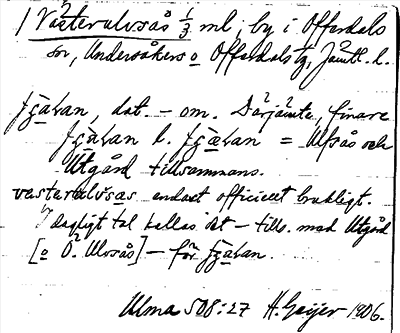 1 Västerulvsås 1/3 ml, by i Offerdals
sn, Undersåkers o Offerdals tg, Jämtl. l.
dat. – om. Därjämte, finare
l. = Ulfsås och
Utgård tillsammans.
västerulvsås endast officiellt brukligt.
I dagligt tal kallas det – tills. med Utgård
[o Ö. Ulvsås] – för
Ulma 508:27 H. Geijer 1906.